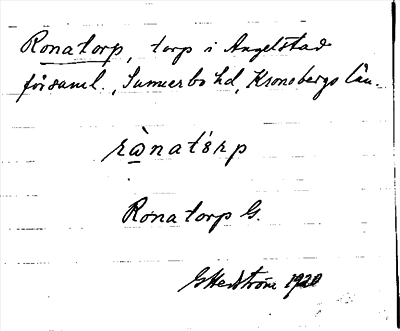 Ronatorp, torp i Angelstad
församl., Sunnerbo hd, Kronobergs län.
rànatὰrp
Ronatorp G.
G Hedström 1920